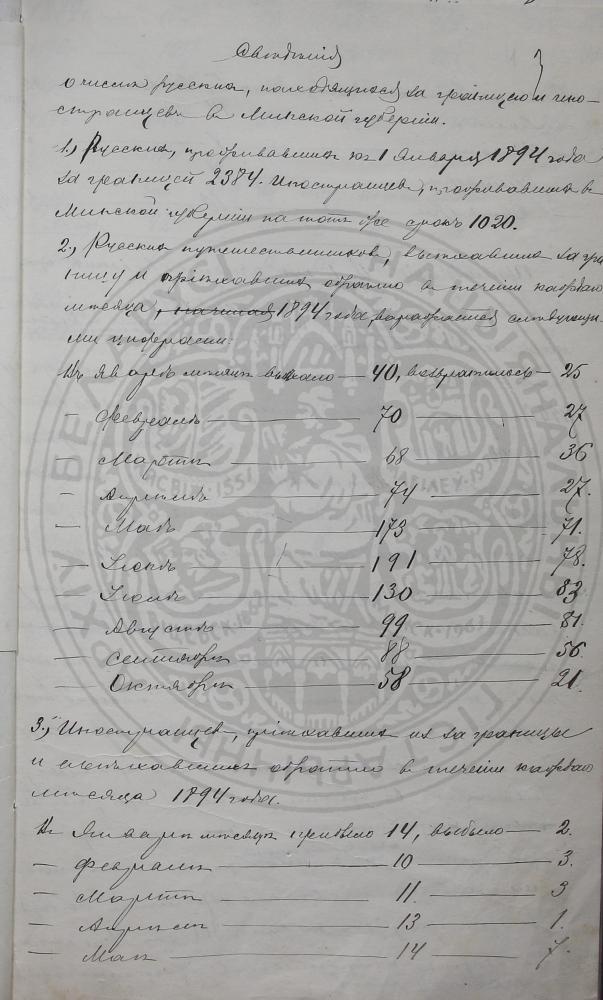 Сведенія
о числе русских, находящихся за границею и ино-
странцев в Минской губерніи.
1) Русских, пробывавших къ 1 Января 1894 года
за границей 2384. Иностранцев, пробывавших в
Минской губерніи на тотъ же срокъ 1020.
2) Русских путешественников, выехавших за гра
ницу и пріехавших обратно в теченіи каждаго
месяца, начиная 1894 года, выражается следующи-
ми цифрами:
Въ Январе месяце выехало — 40, возвратилось — 25
— Феврале — 70 — 27
— Марте — 68 — 36
— Апреле — 74 — 27.
— Мае — 173 — 71.
— Іюне — 191 — 78.
— Іюле — 130 — 83
— Августе — 99 — 81.
— Сентябре — 88 — 56.
— Октябре — 58 — 21.
3) Иностранцев, пріехавших из за границы
и выехавших обратно в теченіи каждаго
месяца 1894 года.
Въ Январе месяце прибыло 14, выбыло — 2.
— Феврале — 10 — 3.
— Марте — 11. — 3
— Апреле — 13 — 1.
— Мае — 14 — 7.